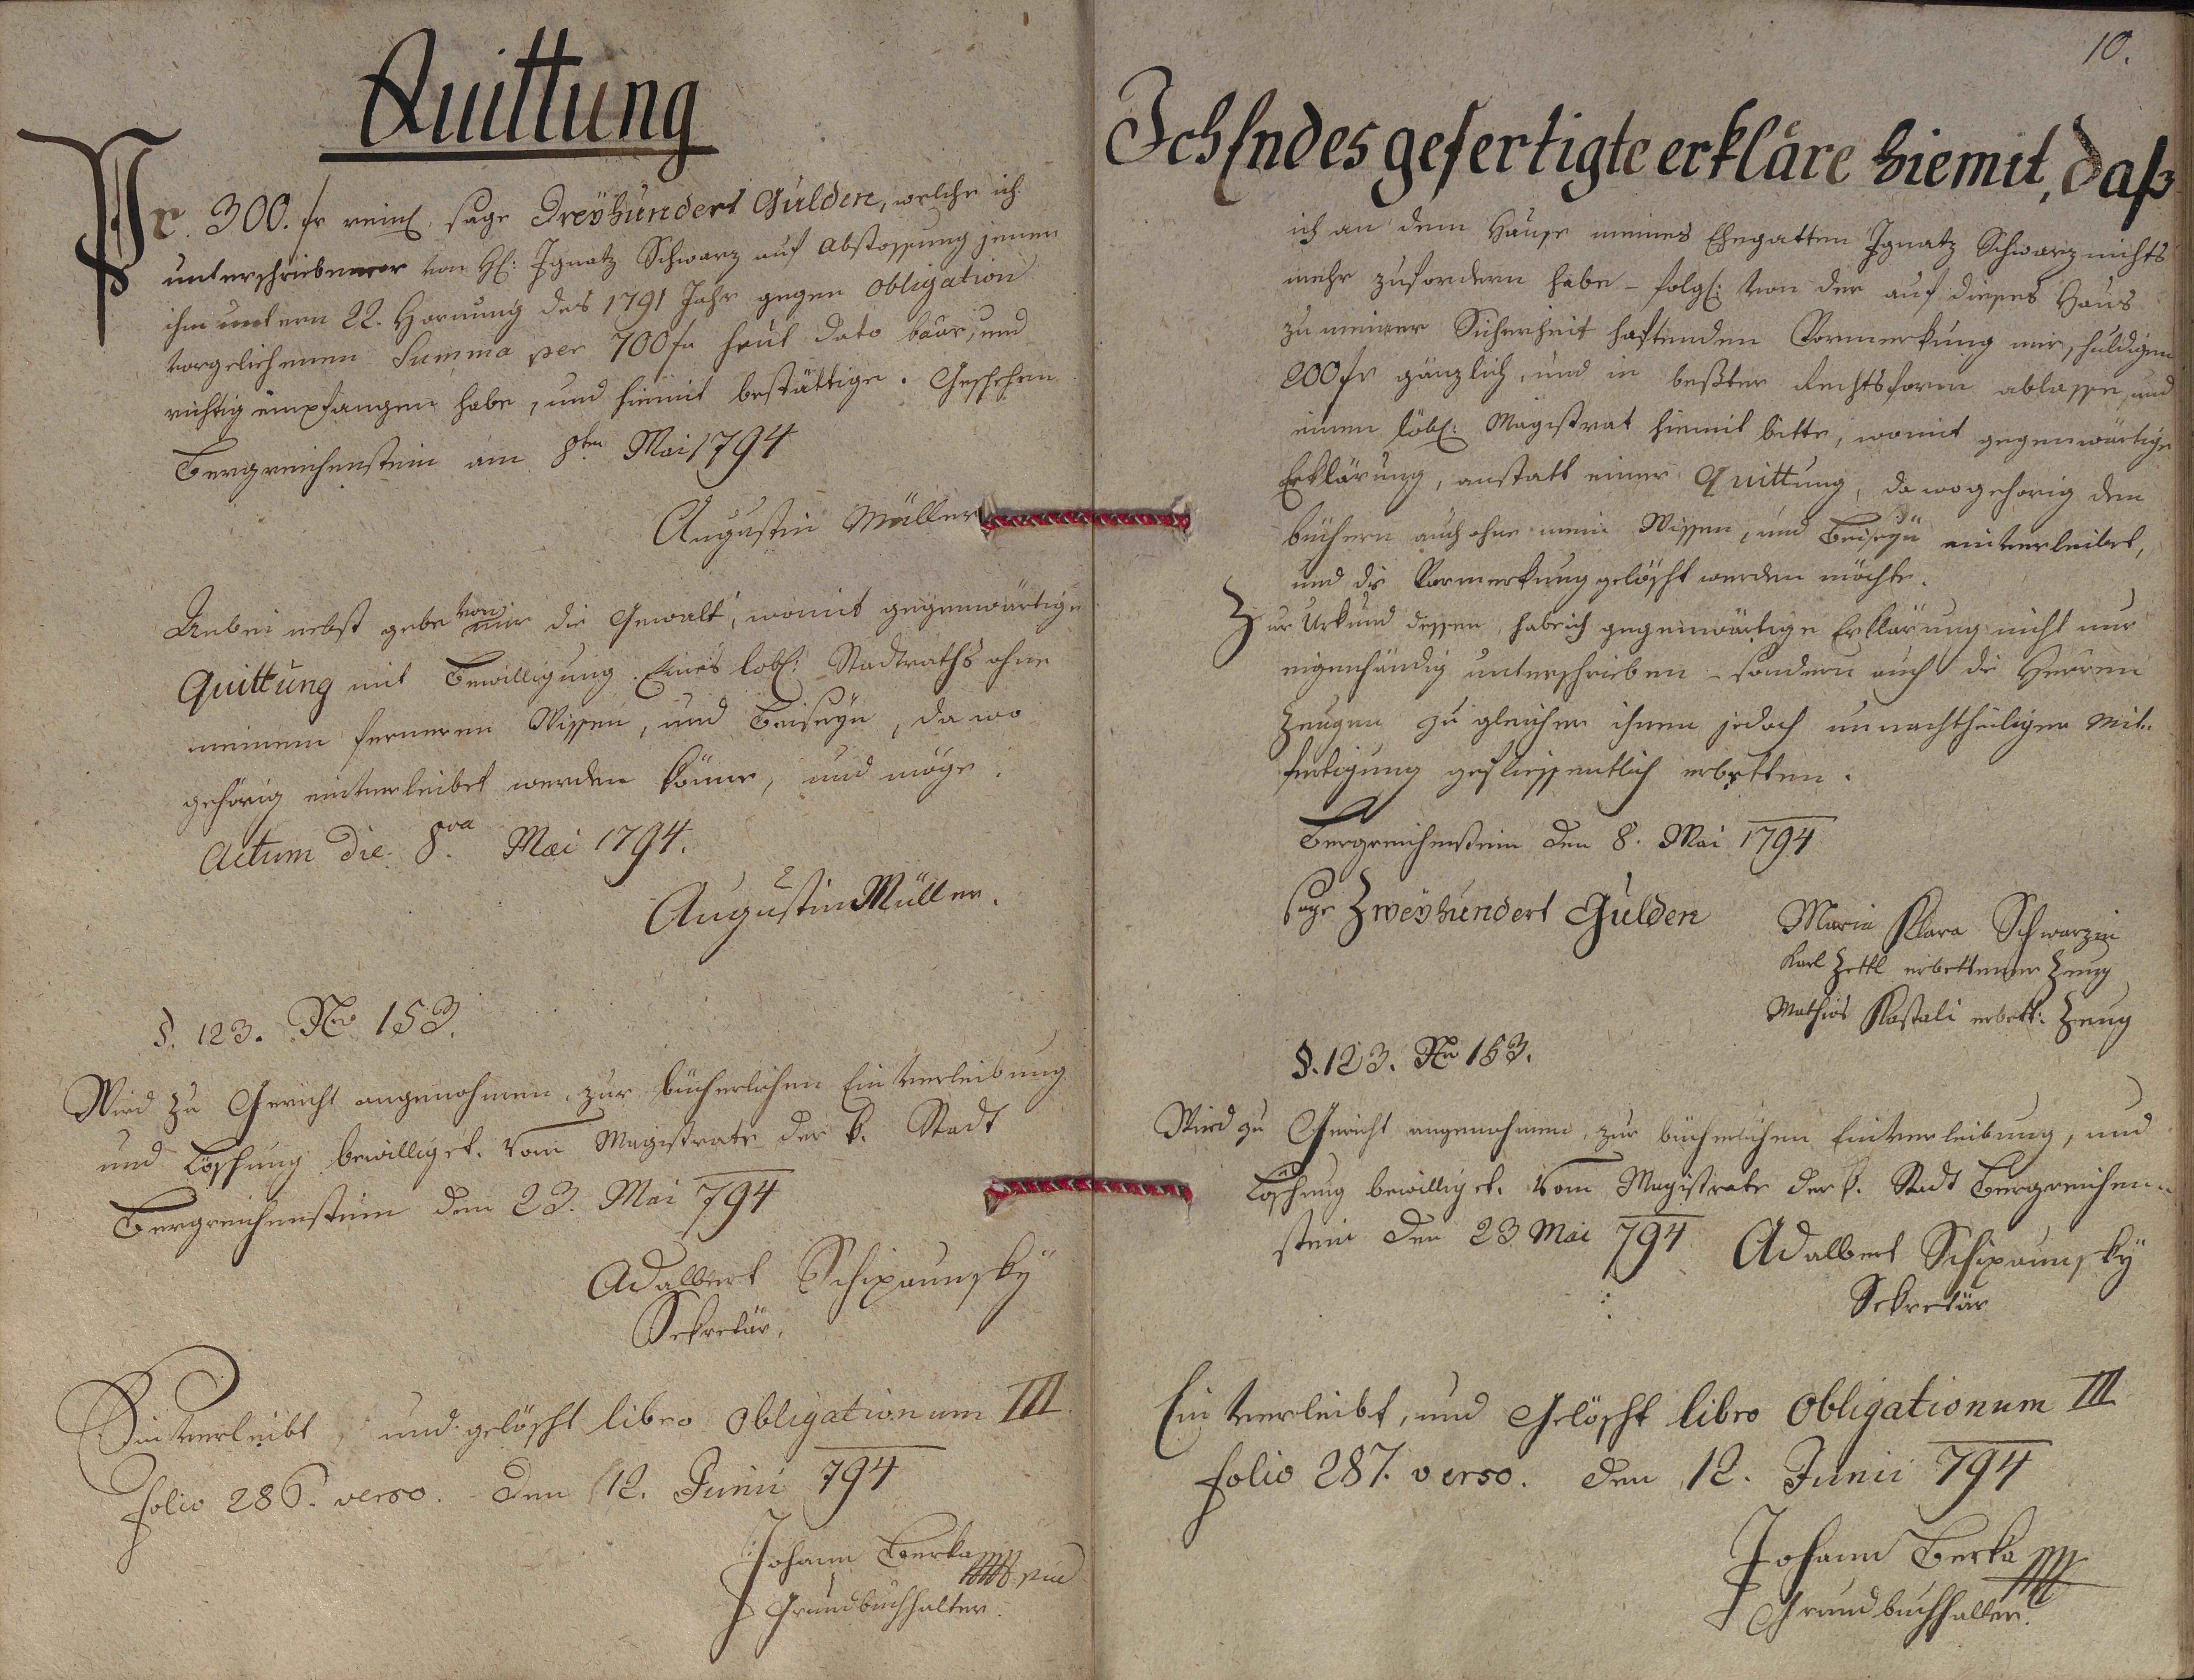 Quittung
Pr. 300. fr reinl. sage Dreÿhundert Gulden, welche ich
unterschriebener von H: Ignatz Schwarz auf Abstossung jener
ihm untern 22. Hornung des 1791 Jahr gegen Obligation
vorgeliehenen Summa per 700 fr heut dato baar, und
richtig empfangen habe, und hiemit bestättige. Geschehen
Bergreichenstein am 8ten Mai 1794
Augustin Müller
Anbei nebst gebe von mir die Gewalt, womit gegenwärtige
Quittung mit Bewilligung Eines löbl: Stadtraths ohne
meinem ferneren Wissen, und Beiseÿn, da wo
gehörig einverleibet werden könne, und möge.
Actum die 8va Mai 1794.
Augustin Müller.
§. 123. No 153.
Wird zu Gericht angenohmen, zur bücherlichen Einverleibung
und Löschung bewilliget. Vom Magistrate der k. Stadt
Bergreichenstein den 23. Mai 794
Adalbert Schipaunskÿ
Sekretär.
Einverleibt, und gelöscht libro Obligationum III.
folio 286. verso. den 12. Junii 794
Johann Berka
Grundbuchhalter.
10.
Ich Endesgefertigte erkläre hiemit, daß
ich an dem Hause meines Ehegatten Ignatz Schwarz nichts
mehr zufordern habe – folgl: von der auf dieses Haus
zu meiner Sicherheit haftenden Vormerkung mir schuldigen
200 fr gänzlich, und in beßter Rechtsform ablasse, und
einen löbl: Magistrat hiemit bitte, womit gegenwärtige
Erklärung, anstatt einer Quittung, da wo gehorig den
büchern auch ohne mein Wissen, und Beiseÿn einverleibet,
und die Vormerkung gelöscht werden möchte.
Zur Urkund dessen habe ich gegenwärtige Erklärung nicht nur
eigenhändig unterschrieben – sondern auch die Herren
Zeugen zu gleicher ihnen jedoch unnachtheiligen Mit-
fertigung geflissentlich erbetten.
Bergreichenstein den 8. Mai 1794
sage Zweÿhundert Gulden
Maria Klara Schwarzin
Karl Zettl erbettener Zeug
Mathias Kastali erbett: Zeug
§. 123. No 153.
Wird zu Gericht angenohmen, zur bücherlichen Einverleibung, und
Löschung bewilliget. Vom Magistrate der k. Stadt Bergreichen-
stein den 23 Mai 794
Adalbert Schipaunskÿ
Sekretär
Einverleibt, und Gelöscht libro Obligationum III
folio 287. verso. den 12. Junii 794
Johann Berka
Grundbuchhalter.